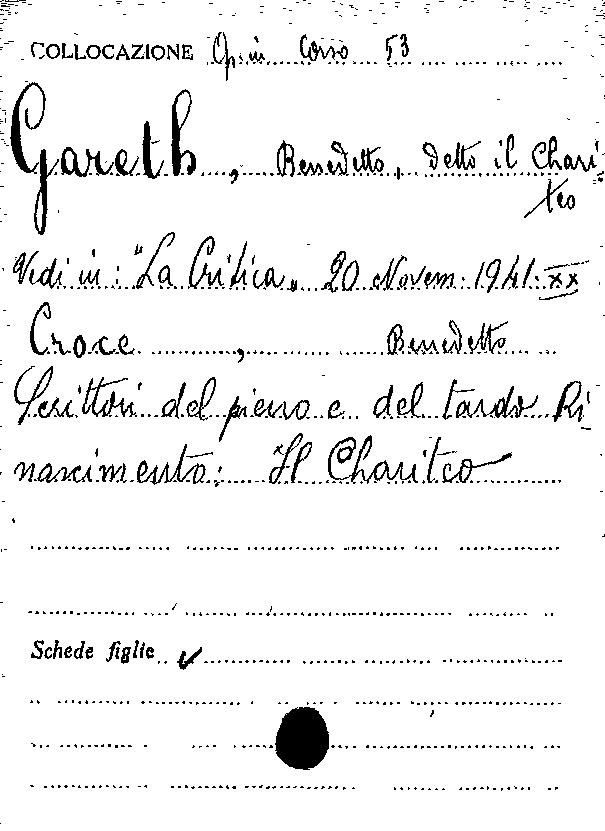 COLLOCAZIONE Op. in Corso 53
Gareth, Benedetto, detto il Chari-
teo
Vedi in: "La Critica„ 20 Novem. 1941. XX
Croce, Benedetto
Scrittori del pieno e del tardo Ri-
nascimento: Il Chariteo
Schede figlie ✓